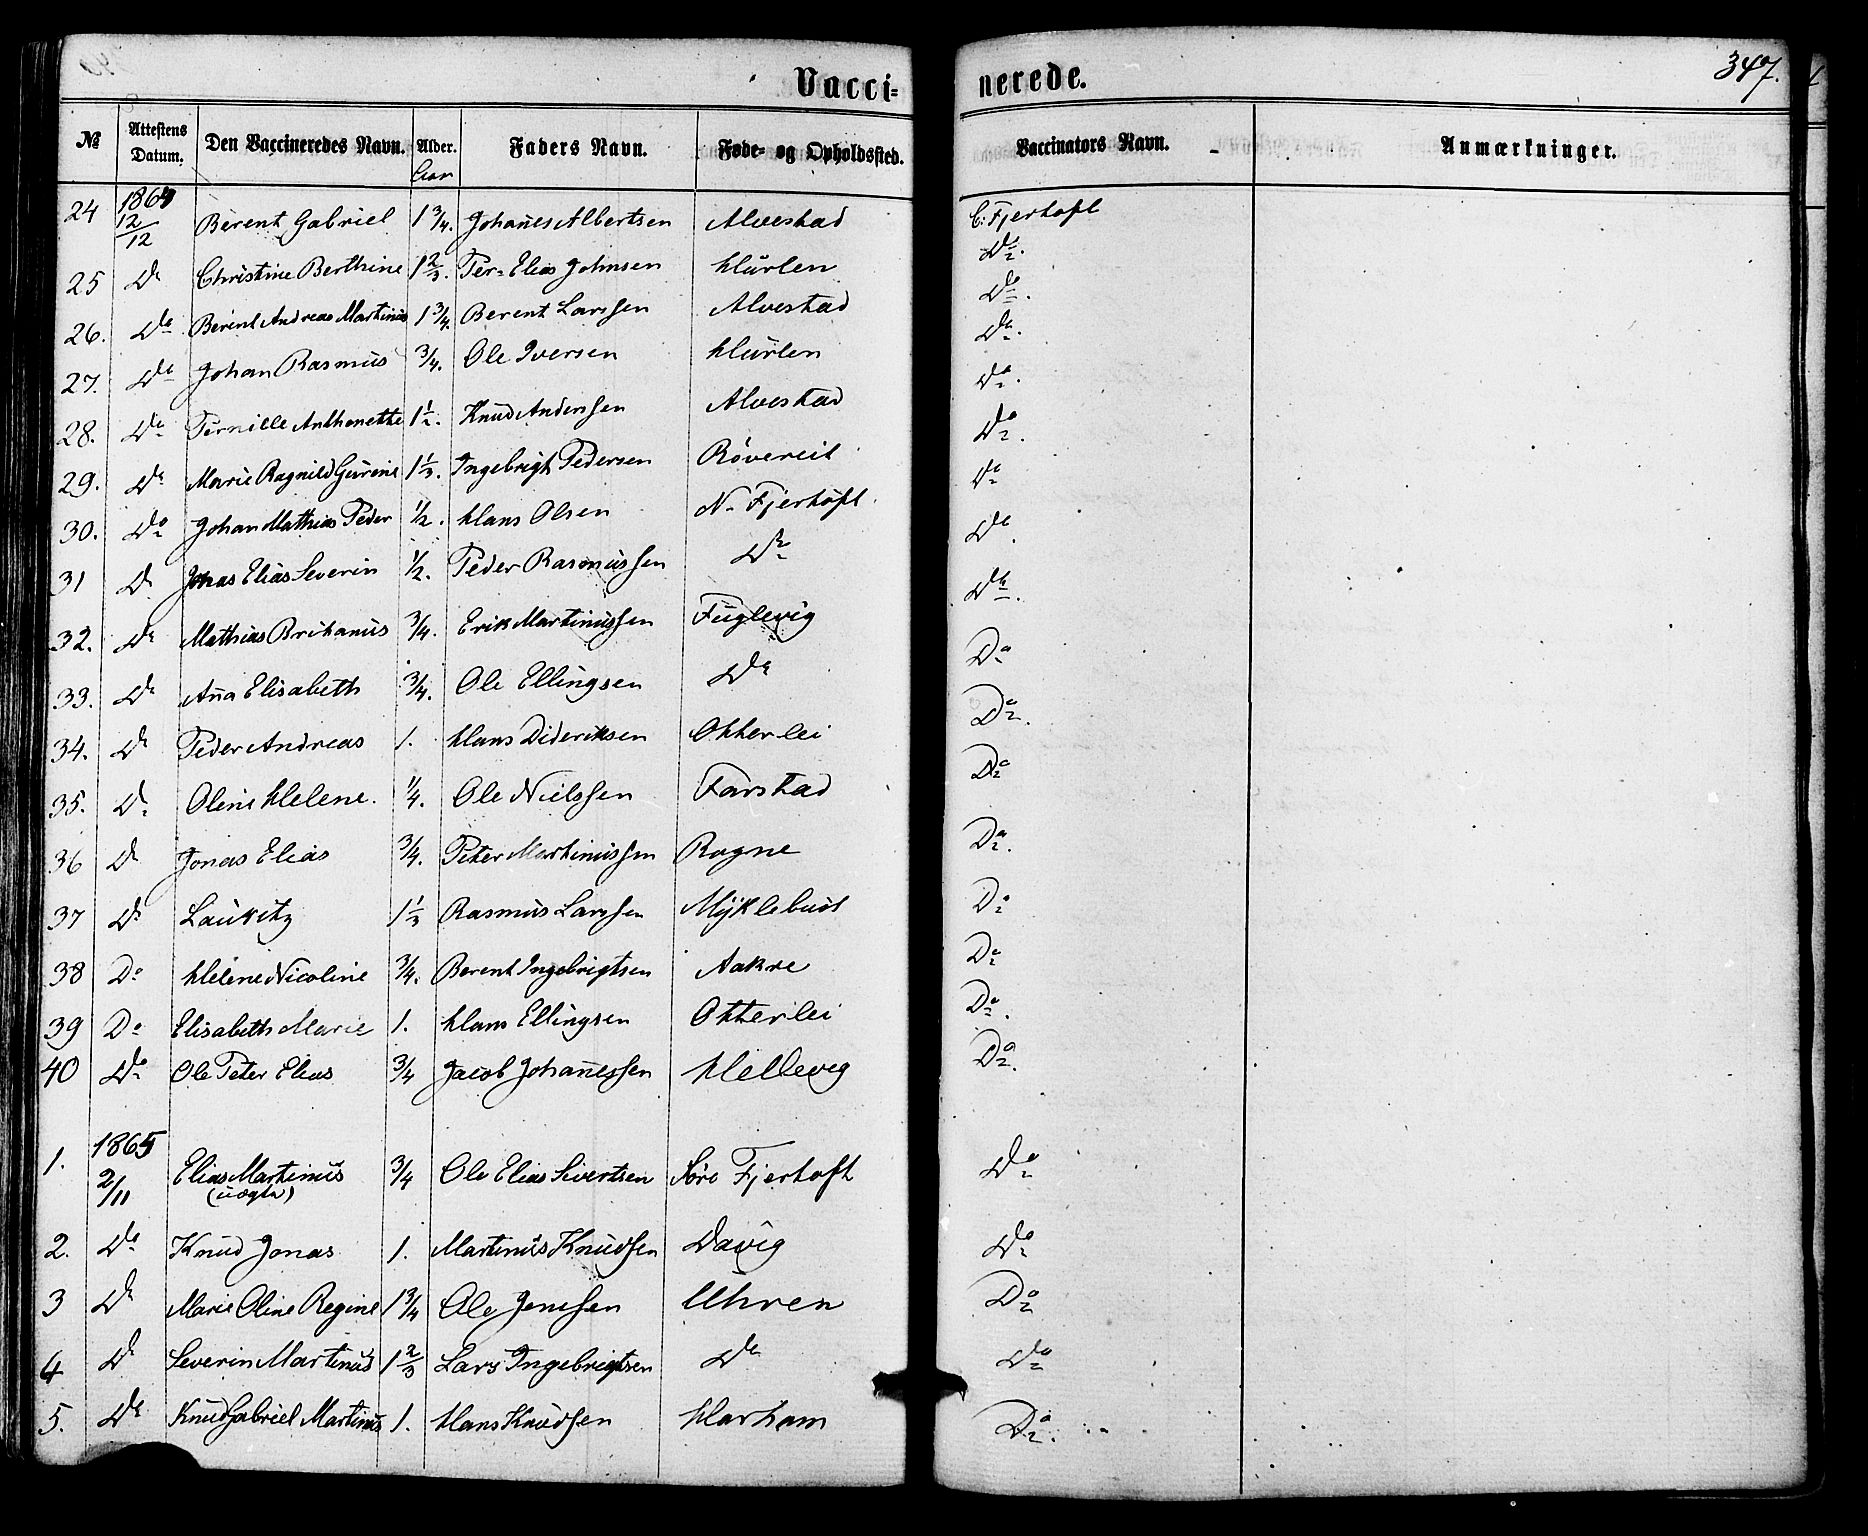 Vacci- nerede. 347.
№ Attestens Datum. Den Vaccineredes Navn. Alder. Aar Faders Navn. Føde- og Opholdssted. Vaccinators Navn. Anmærkninger.
1864
24 12/12 Berent Gabriel 1 3/4. Johanes Albertsen Alvestad C: Fjertoft
25 Do Christine Berthine 1 2/3. Per- Elias Johnsen Hurlen Do.
26. Do Berent Andreas Martinus 1 3/4. Berent Larssen Alvestad Do.
27. Do Johan Rasmus 3/4. Ole Iversen Hurlen Do.
28. Do Pernille Anthonette 1 1/2. Knud Anderssen Alvestad Do.
29. Do Marie Ragnild Gurine 1 1/3. Ingebrigt Pedersen Røvereit Do.
30. Do Johan Mathias Peder 1/2. Hans Olsen N. Fjertoft. Do
31 Do Jonas Elias Severin 1/2. Peder Rasmussen Do Do.
32. Do Mathias Britanus 3/4. Erik Martinussen Fuglevig Do.
33. Do Ana Elisabeth 3/4. Ole Ellingsen Do Do
34. Do Peder Andreas 1. Hans Dideriksen Otterlei Do.
35. Do Oline Helene. 1/4. Ole Nielssen Farstad Do
36 Do Jonas Elias 3/4. Peter Martinussen Rogne Do.
37 Do Lauritz 1 1/3 Rasmus Larssen Myklebust Do
38 Do Helene Nicoline 3/4. Berent Ingebrigtsen Aakre Do
39 Do Elisabeth Marie 1. Hans Ellingsen Otterlei Do.
40 Do Ole Peter Elias 3/4 Jacob Johanessen Hellevig Do.
1865
1. 2/11 Elias Martinus 3/4 Ole Elias Sivertsen Søre Fjertoft Do
(uægte)
2. Do Knud Jonas 1. Martinus Knudsen Davig Do
3 Do Marie Oline Regine 1 3/4 Ole Jenssen Uhren Do
4 Do Severin Martinus 1 2/3 Lars Ingebrigtsen Do Do
5. Do Knud Gabriel Martinus 1. Hans Knudsen Harham Do.